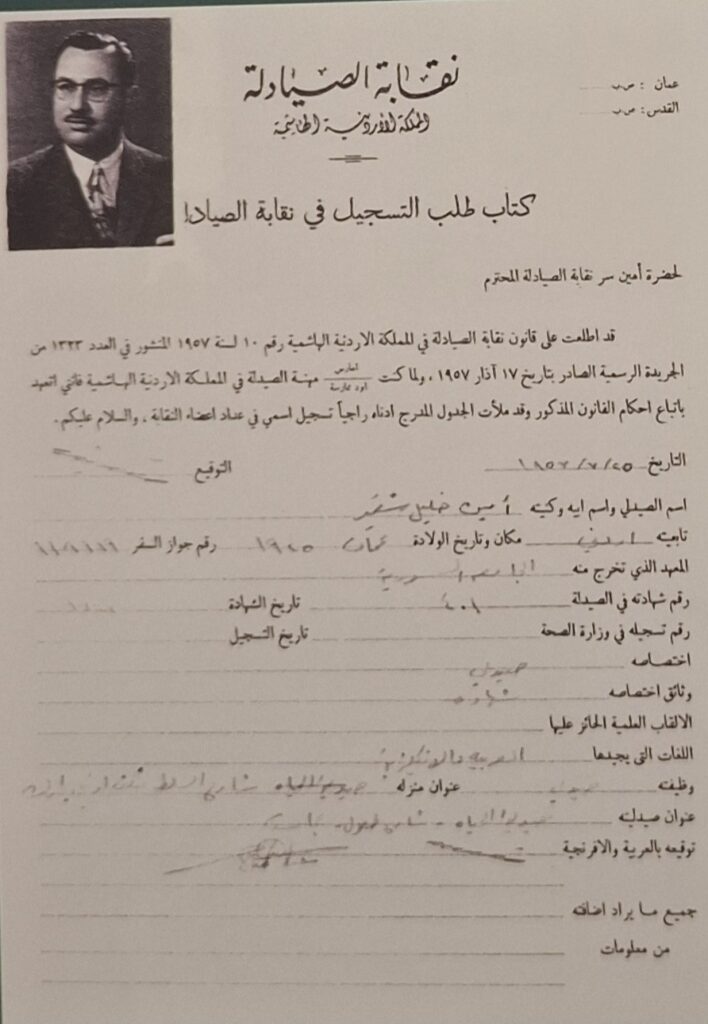 نقابة الصيادلة
المملكة الأردنية الهاشمية
عمان : ص.ب
القدس : ص.ب
كتاب طلب التسجيل في نقابة الصيادا
لحضرة أمين سر نقابة الصيادلة المحترم
قد اطلعت على قانون نقابة الصيادلة في المملكة الاردنية الهاشمية رقم ١٠ لسنة ١٩٥٧ المنشور في العدد ١٣٢٣ من
الجريدة الرسمية الصادر بتاريخ ١٧ آذار ١٩٥٧ ، ولما كنت امارس / اود ممارسة مهنة الصيدلة في المملكة الاردنية الهاشمية فانني اتعهد
باتباع احكام القانون المذكور وقد ملأت الجدول المدرج ادناه راجياً تسجيل اسمي في عداد اعضاء النقابة ، والسلام عليكم .
التاريخ ١٩٥٧/٧/٢٥ التوقيع
اسم الصيدلي واسم ابيه وكنيته أمين خليل شقير
تابعيته اردني مكان وتاريخ الولادة عمان ١٩٢٥ رقم جواز السفر
المعهد الذي تخرج منه الجامعة السورية
رقم شهادته في الصيدلة ٤٠١ تاريخ الشهادة
رقم تسجيله في وزارة الصحة تاريخ التسجيل
اختصاصه صيدلي
وثائق اختصاصه شهادة
الالقاب العلمية الحائز عليها
اللغات التي يجيدها العربية والانكليزية
وظيفته صيدلي عنوان منزله شارع السلط
عنوان صيدليته صيدلية الحياه - شارع
توقيعه بالعربية والافرنجية
جميع ما يراد اضافته
من معلومات